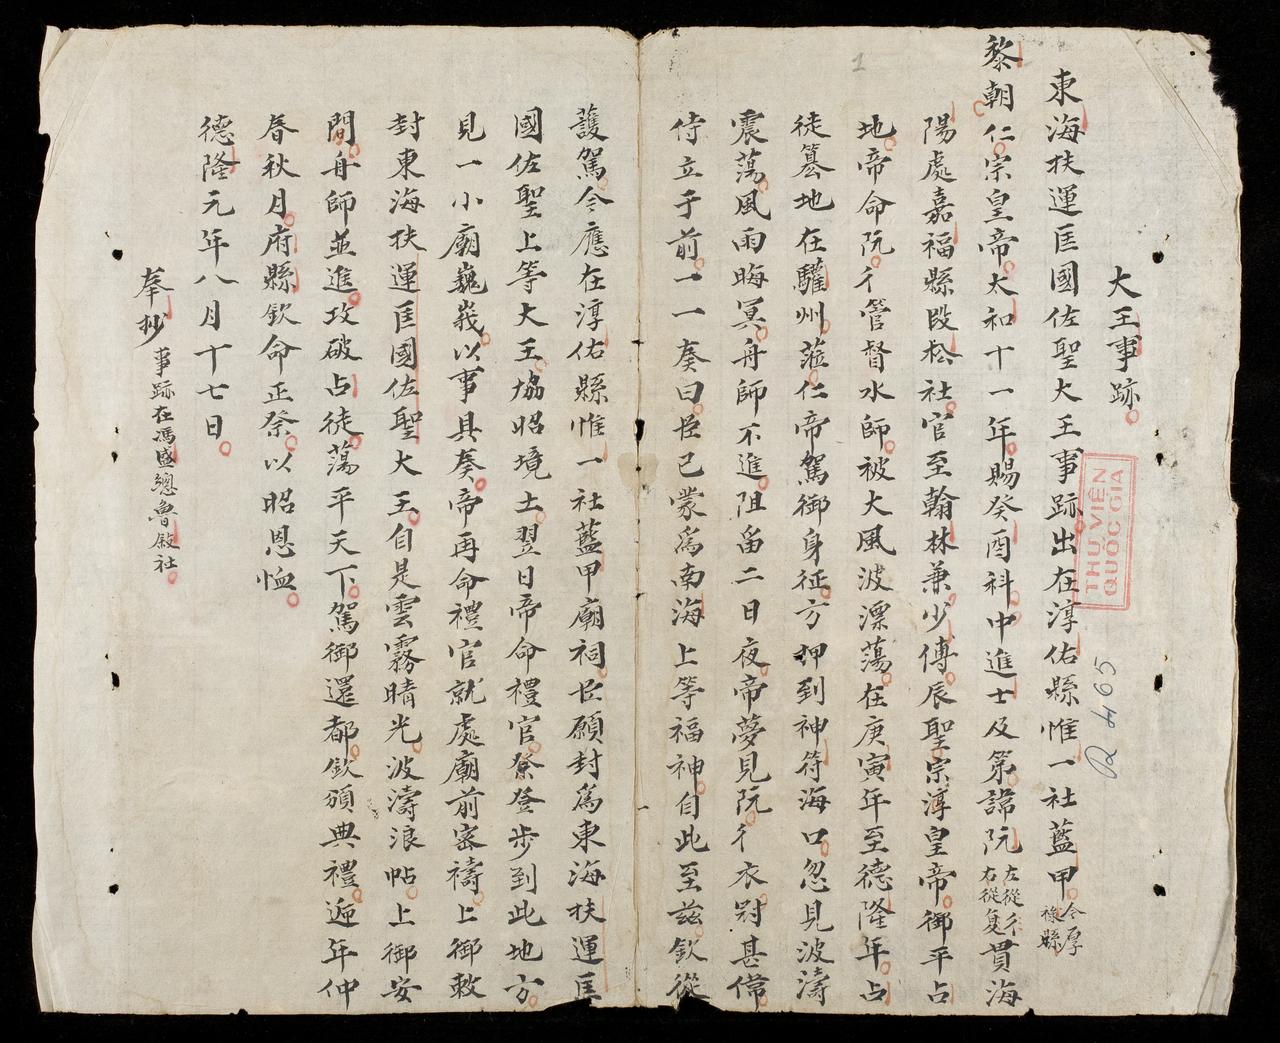 大王事跡
東海扶運匡國佐聖大王事跡出在淳佑縣惟一社藍甲今厚祿縣
黎朝仁宗皇帝太和十一年賜癸酉科中進士及第諱阮左從彳右從复貫海
陽處嘉福縣段松社官至翰林兼少傅辰聖宗淳皇帝御平占
地帝命阮彳管督水師被大風波漂蕩在庚寅年至德隆年占
徒簒地在驩州蒞仁帝駕御身征方押到神符海口忽見波濤
震蕩風雨晦冥舟師不進阻畱二日夜帝夢見阮彳衣冠甚偉
侍立于前一一奏曰臣已蒙爲南海上等福神自此至兹欽從
護駕今應在淳佑縣惟一社藍甲廟祠臣願封爲東海扶運匡
國佐聖上等大王協昭境土翌日帝命禮官登步到此地方
見一小廟巍峩以事具奏帝再命禮官就處廟前密禱上御敕
封東海扶運匡國佐聖大王自是雲霧晴光波濤浪帖上御安
間舟師並進攻破占徒蕩平天下駕御還都欽頒典禮遞年仲
春秋月府縣欽命正祭以昭恩恤
德隆元年八月十七日
奉抄事跡在馮盛總魯敍社
THƯ VIỆN
QUỐC GIA
R 465
1